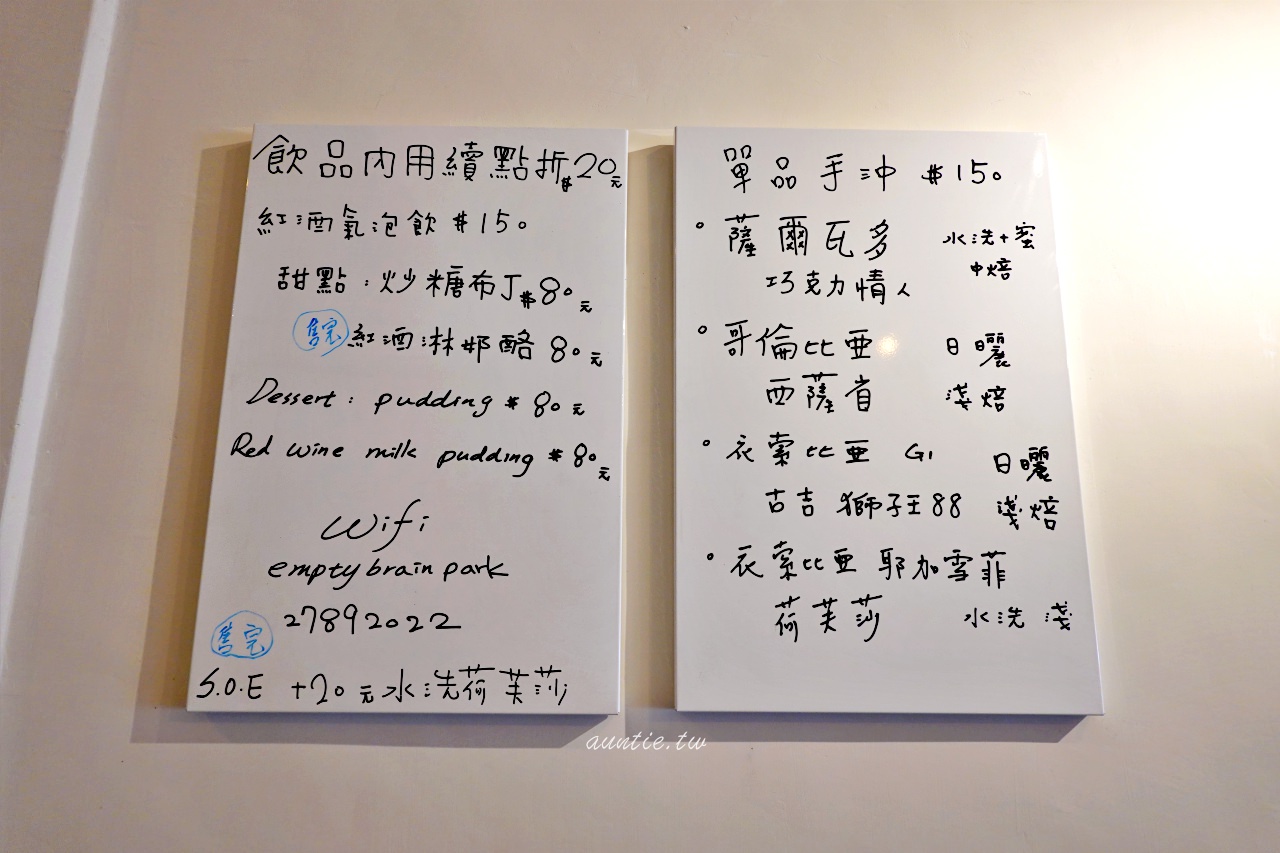 飲品內用續點折$20元
紅酒氣泡飲 #150
甜點：炒糖布丁$80元
售完 紅酒淋奶酪 80元
Dessert: pudding $ 80元
Red wine milk pudding $ 80元
wifi
empty brain park
27892022
售完
S.O.E +20元水洗荷芙莎
單品手沖 #150
薩爾瓦多 水洗+蜜
巧克力情人 中焙
哥倫比亞 日曬
西薩省 淺焙
衣索比亞 G1 日曬
古吉 獅子王88 淺焙
衣索比亞 耶加雪菲
荷芙莎 水洗 淺
auntie.tw